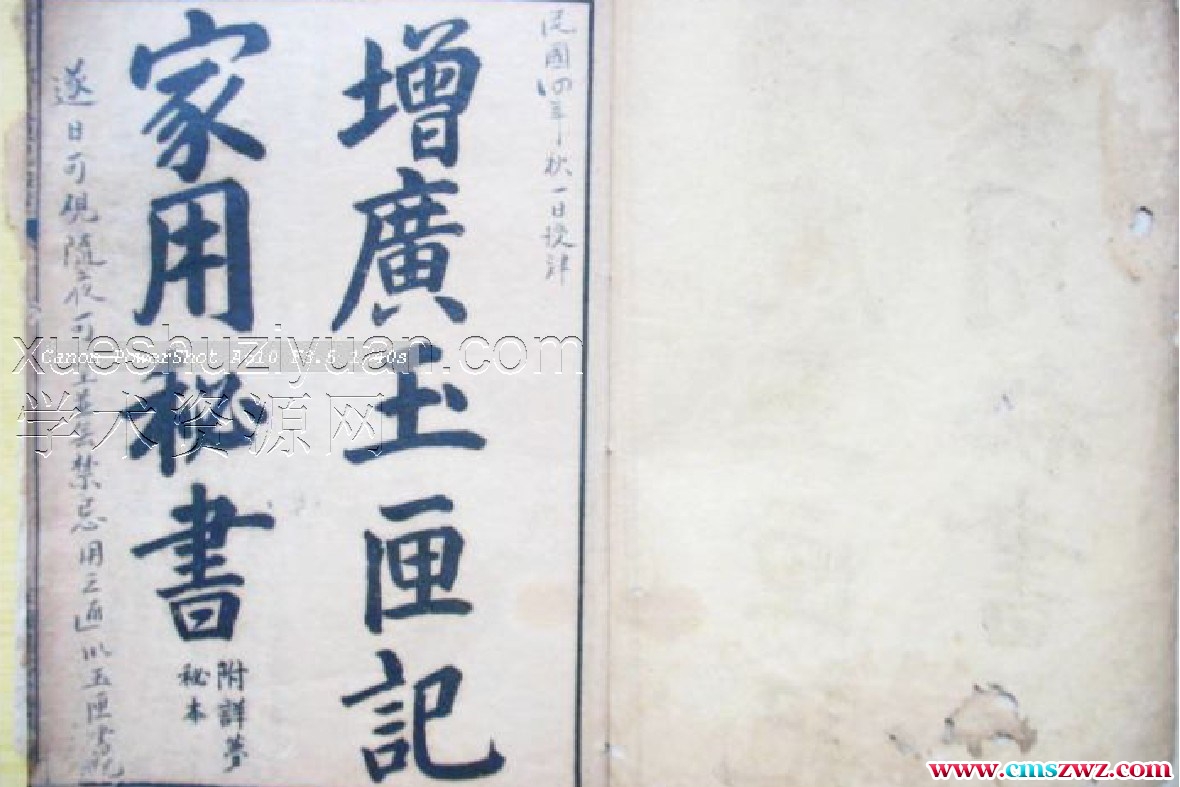 民國四年秋一日
增廣玉匣記
家用秘書
附詳夢
秘本
遂日可 隨夜可 禁忌用之 以玉匣書
xueshuziyuan.com
Canon PowerShot A610 F3.5 1/40s
学术资源网
www.cmszwz.com